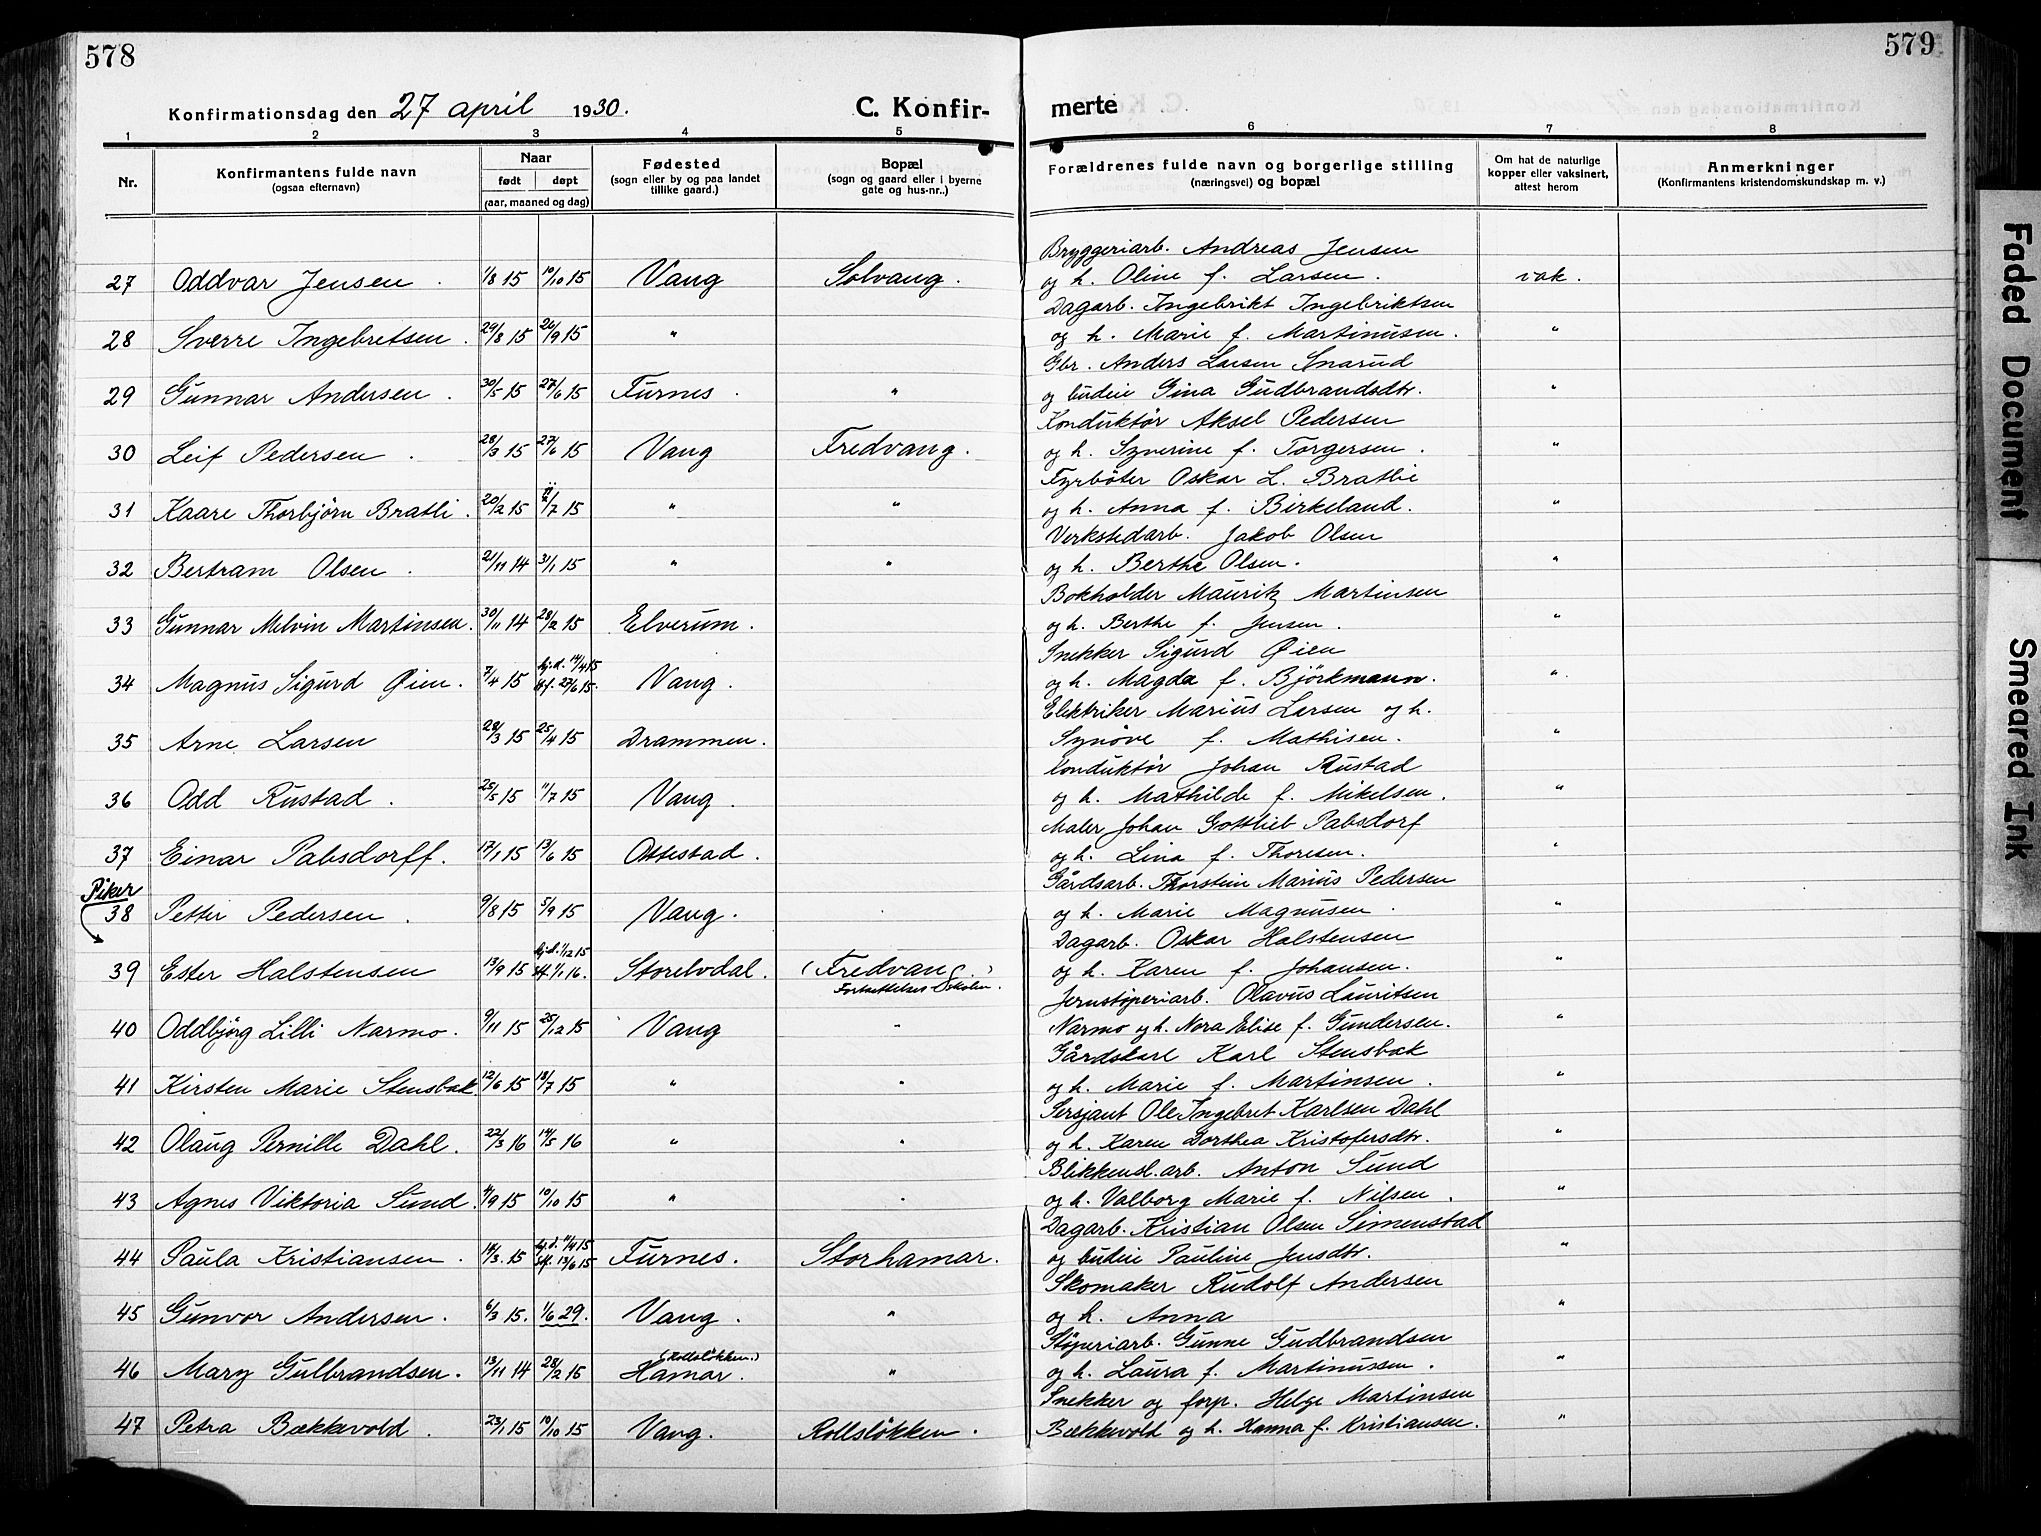 578
579
Konfirmationsdag den 27 april 1930.
C. Konfir-
merte
1 2 3 4 5 6 7 8
Nr.
Konfirmantens fulde navn
(ogsaa efternavn)
Naar
født døpt
(aar, maaned og dag)
Fødested
(sogn eller by og paa landet
tillike gaard.)
Bopæl
(sogn og gaard eller i byerne
gate og hus-nr..)
Forældrenes fulde navn og borgerlige stilling
(næringsvei) og bopæl
Om hat de naturlige
kopper eller vaksinert,
attest herom
Anmerkninger
(Konfirmantens kristendomskundskap m. v.)
Bryggeriarb. Andreas Jensen
27 Oddvar Jensen . 1/8 15 10/10 15 Vang Solvang. og h. Oline f. Larsen. vak.
Dagarb. Ingebrikt Ingebriktsen
28 Sverre Ingebretsen. 29/8 15 26/9 15 " og h. Marie f. Martinusen. "
Gbr. Anders Larsen Snarud
29 Gunnar Andersen . 30/5 15 27/6 15 Furnes . " og budeie Gina Gudbrandsdtr. "
Konduktør Aksel Pedersen
30 Leif Pedersen . 28/3 15 27/6 15 Vang Fredvang. og h. Syverine f. Torgersen. "
Fyrbøter Oskar L. Bratli
31 Kaare Thorbjørn Bratli. 20/2 15 11/7 15 " " og h. Anna f. Birkeland. "
Verkstedarb. Jakob Olsen
32 Bertram Olsen . 21/11 14 31/1 15 " " og h. Berthe Olsen. "
Bokholder Mauritz Martinsen
33 Gunnar Melvin Martinsen. 30/11 14 28/2 15 Elverum. og h. Berthe f. Jensen. "
Snekker Sigurd Øien
hj.d. 14/4 15
34 Magnus Sigurd Øien. 7/4 15 stf. 27/6 15. Vang. og h. Magda f. Björkmann. "
Elektriker Marius Larsen og h.
35 Arne Larsen 28/3 15 25/4 15 Drammen. Synöve f. Mathisen. "
Konduktør Johan Rustad
36 Odd Rustad . 25/5 15 11/7 15 Vang . og h. Mathilde f. Mikelsen. "
Maler Johan Gottlieb Pabsdorf
37 Einar Pabsdorff. 17/1 15 13/6 15 Ottestad . og h. Lina f. Thoresen. "
Piker
Gårdsarb. Thorstein Marius Pedersen
38 Petter Pedersen . 9/8 15 5/9 15 Vang. og h. Marie Magnusen . "
Dagarb. Oskar Halstensen
hj.d. 1/12 15
39 Ester Halstensen 13/9 15 stf. 1/1 16. Storelvdal. (Fredvang.) og h. Karen f. Johansen. "
Fortsettelses Skolen.
Jernstøperiarb. Olavus Lauritsen
40 Oddbjörg Lilli Narmo. 9/11 15 25/12 15 Vang " Narmo og h. Nora Elise f. Gundersen. "
Gårdskarl Karl Stensbak
41 Kirsten Marie Stensbak. 12/6 15 18/7 15 " " og h. Marie f. Martinsen . "
Sersjant Ole Ingebret Karlsen Dahl
42 Olaug Pernille Dahl. 22/3 16 14/5 16 " " og h. Karen Dorthea Kristofersdtr. "
Blikkensl.arb. Anton Sund
43 Agnes Viktoria Sund. 4/9 15 10/10 15 " " og h. Valborg Marie f. Nilsen . "
Dagarb. Kristian Olsen Simenstad
hj.d. 11/4 15
44 Paula Kristiansen . 14/3. 15 stf. 13/6 15 Furnes. Storhamar. og budeie Pauline Jensdtr. "
Skomaker Rudolf Andersen
45 Gunvor Andersen . 6/3 15. 1/6 29. Vang . " og h. Anna "
Støperiarb. Gunne Gudbrandsen
(Rollsløkken.)
46 Mary Gulbrandsen. 13/11 14 28/2 15 Hamar. " og h. Laura f. Martinussen . "
Snekker og forp. Helge Martinsen
47 Petra Bækkevold . 23/1 15 10/10 15 Vang. Rollsløkken . Bækkevold og h. Hanna f. Kristiansen. "
Faded Document
Smeared Ink